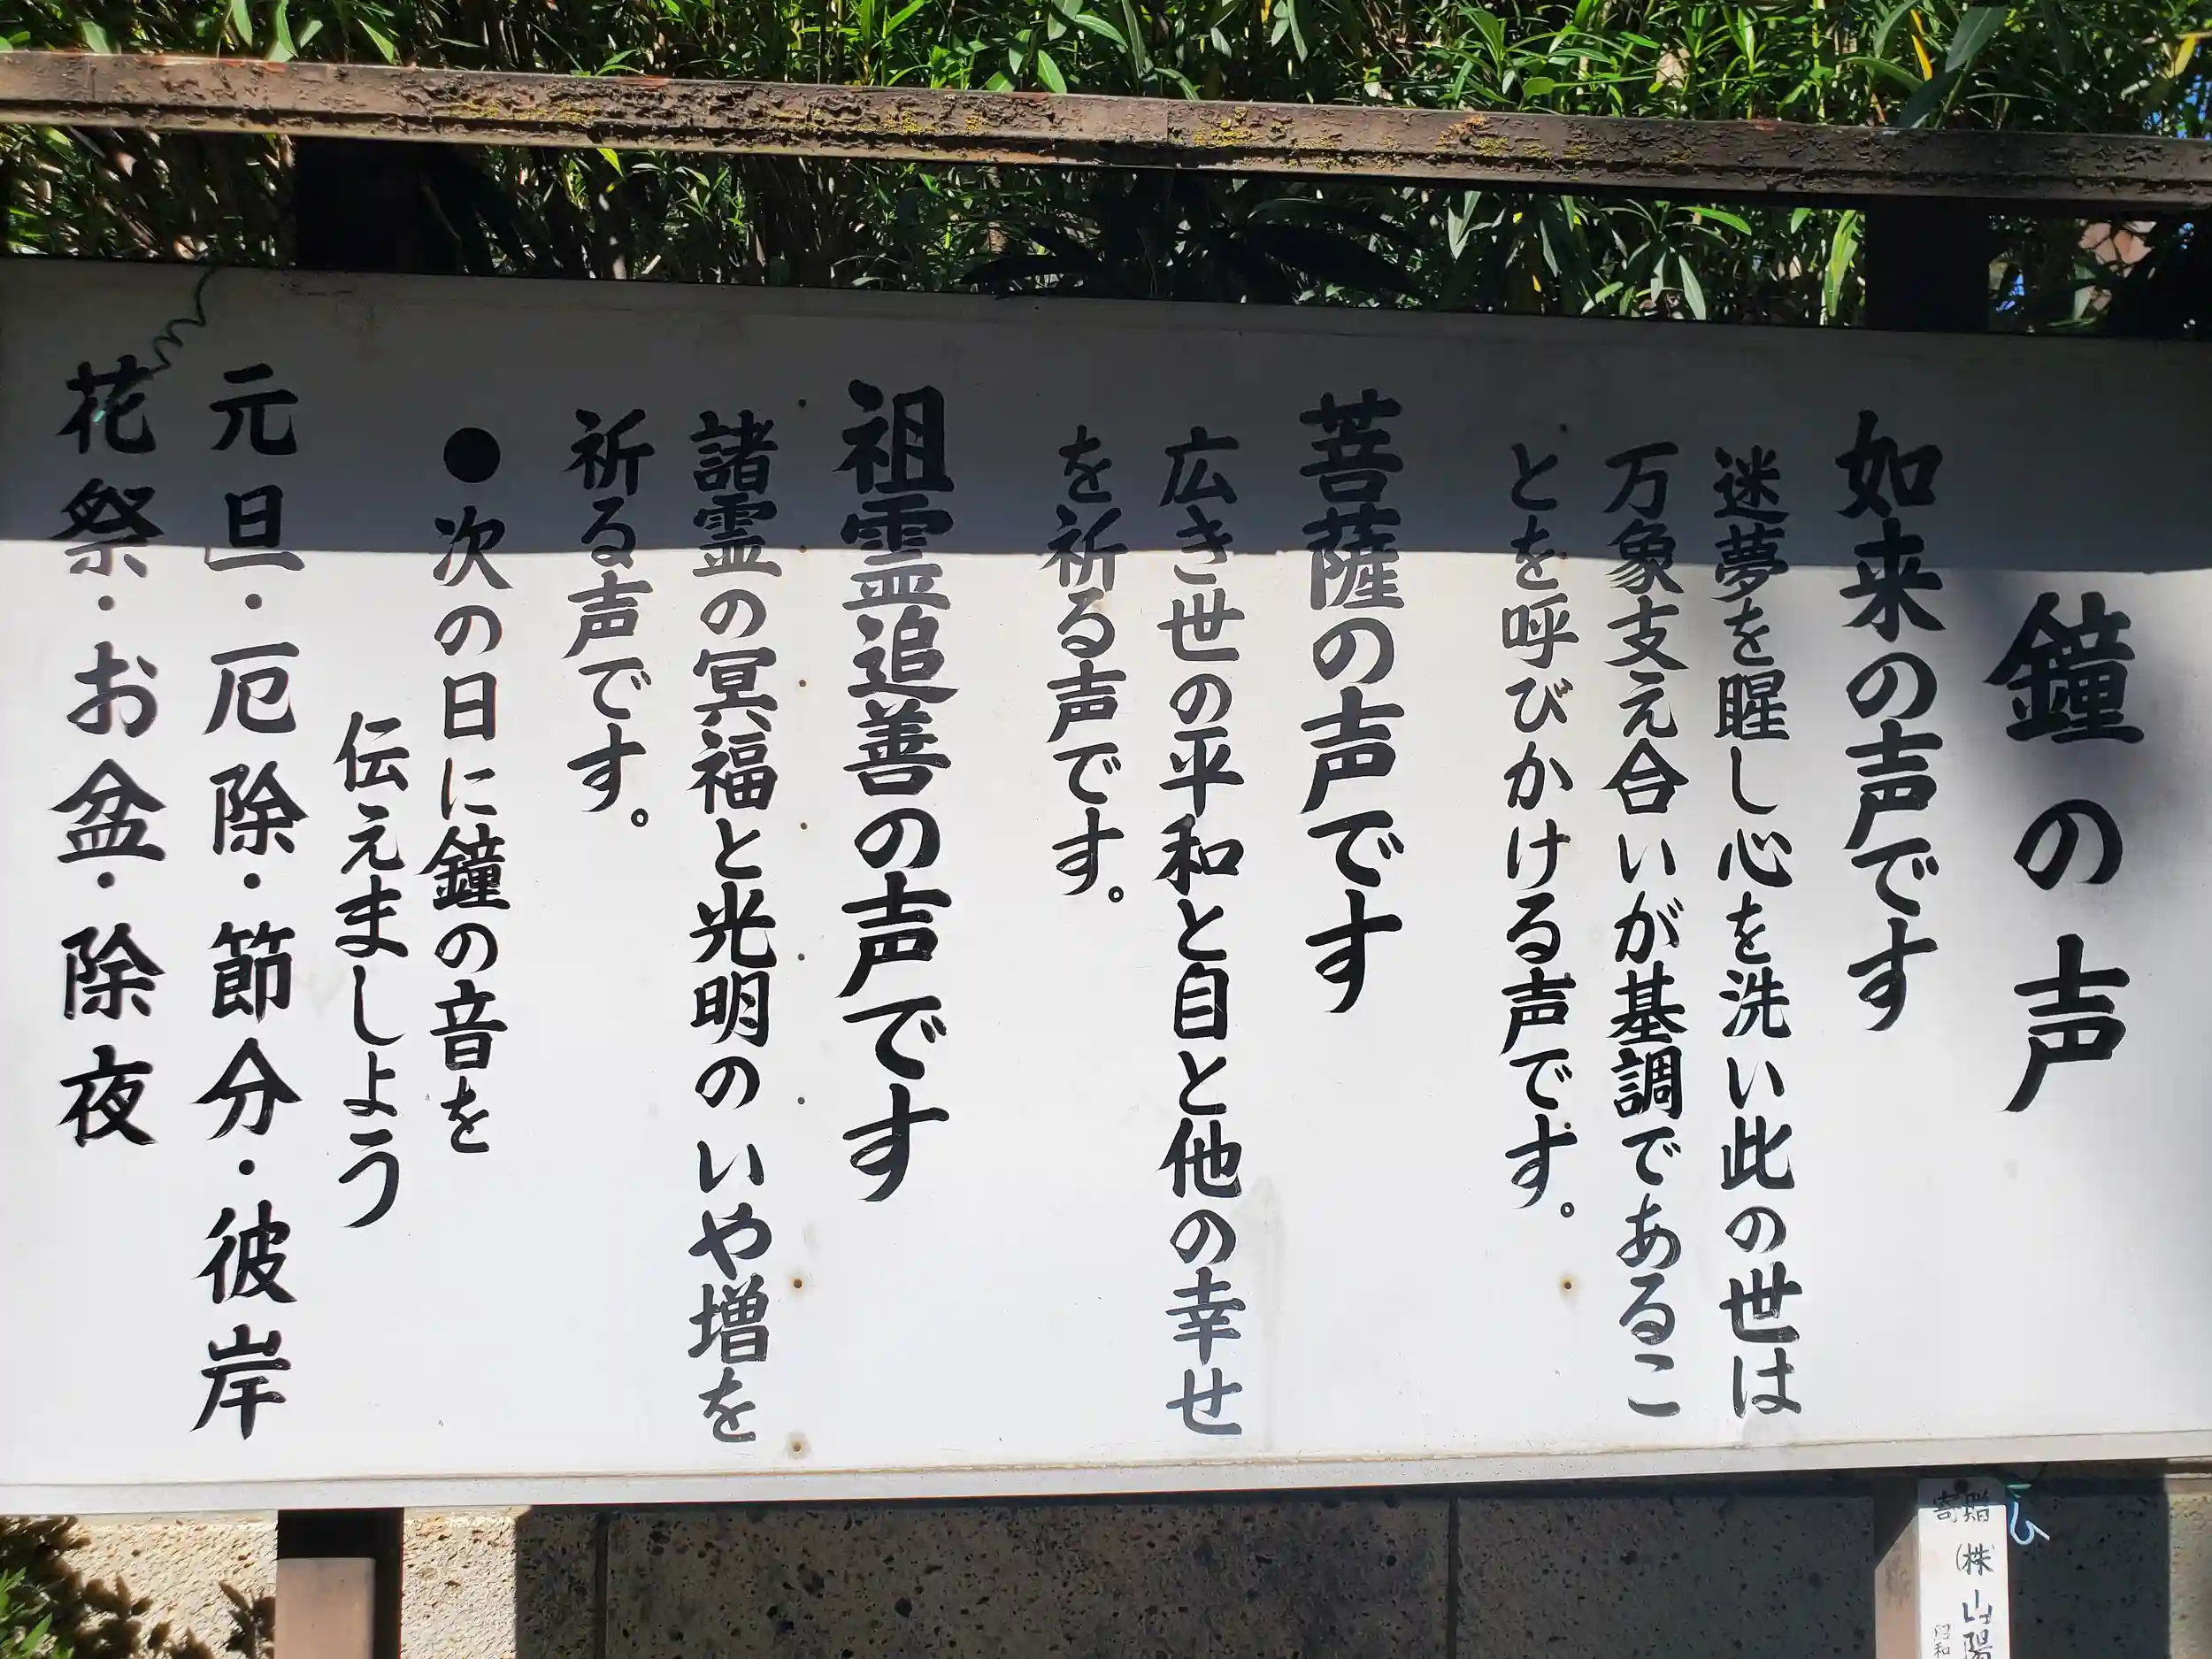 鐘の声
如来の声です
迷夢を醒し心を洗い此の世は
万象支え合いが基調であるこ
とを呼びかける声です。
菩薩の声です
広き世の平和と自と他の幸せ
を祈る声です。
祖霊追善の声です
諸霊の冥福と光明のいや増を
祈る声です。
●次の日に鐘の音を
伝えましよう
元旦・厄除・節分・彼岸
花祭・お盆・除夜
寄贈
(株)山陽
昭和